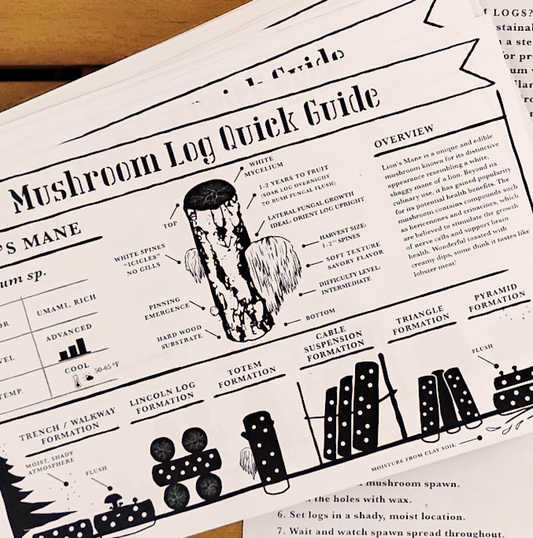 Guide
Mushroom Log Quick Guide
'S MANE
um sp.
OR
UMAMI, RICH
VEL
ADVANCED
TEMP.
COOL
50-65 °F
WHITE
MYCELIUM
1-2 YEARS TO FRUIT
(SOAK LOG OVERNIGHT
TO RUSH FUNGAL FLUSH)
LATERAL FUNGAL GROWTH
IDEAL: ORIENT LOG UPRIGHT
TOP
WHITE SPINES
"ICICLES"
NO GILLS
HARVEST SIZE:
1-2" SPINES
SOFT TEXTURE
SAVORY FLAVOR
DIFFICULTY LEVEL:
INTERMEDIATE
PINNING
EMERGENCE
HARD WOOD
SUBSTRATE
BOTTOM
OVERVIEW
Lion's Mane is a unique and edible
mushroom known for its distinctive
appearance resembling a white,
shaggy mane of a lion. Beyond its
culinary use, it has gained popularity
for its potential health benefits. The
mushroom contains compounds such
as hericenones and erinacines, which
are believed to stimulate the growth
of nerve cells and support brain
health. Wonderful toasted with
creamy dips, some think it tastes like
lobster meat!
TRENCH / WALKWAY
FORMATION
LINCOLN LOG
FORMATION
TOTEM
FORMATION
CABLE
SUSPENSION
FORMATION
TRIANGLE
FORMATION
PYRAMID
FORMATION
MOIST, SHADY
ATMOSPHERE
FLUSH
FLUSH
MOISTURE FROM CLAY SOIL
LOGS?
mushroom spawn.
the holes with wax.
6. Set logs in a shady, moist location.
7. Wait and watch spawn spread throughout.